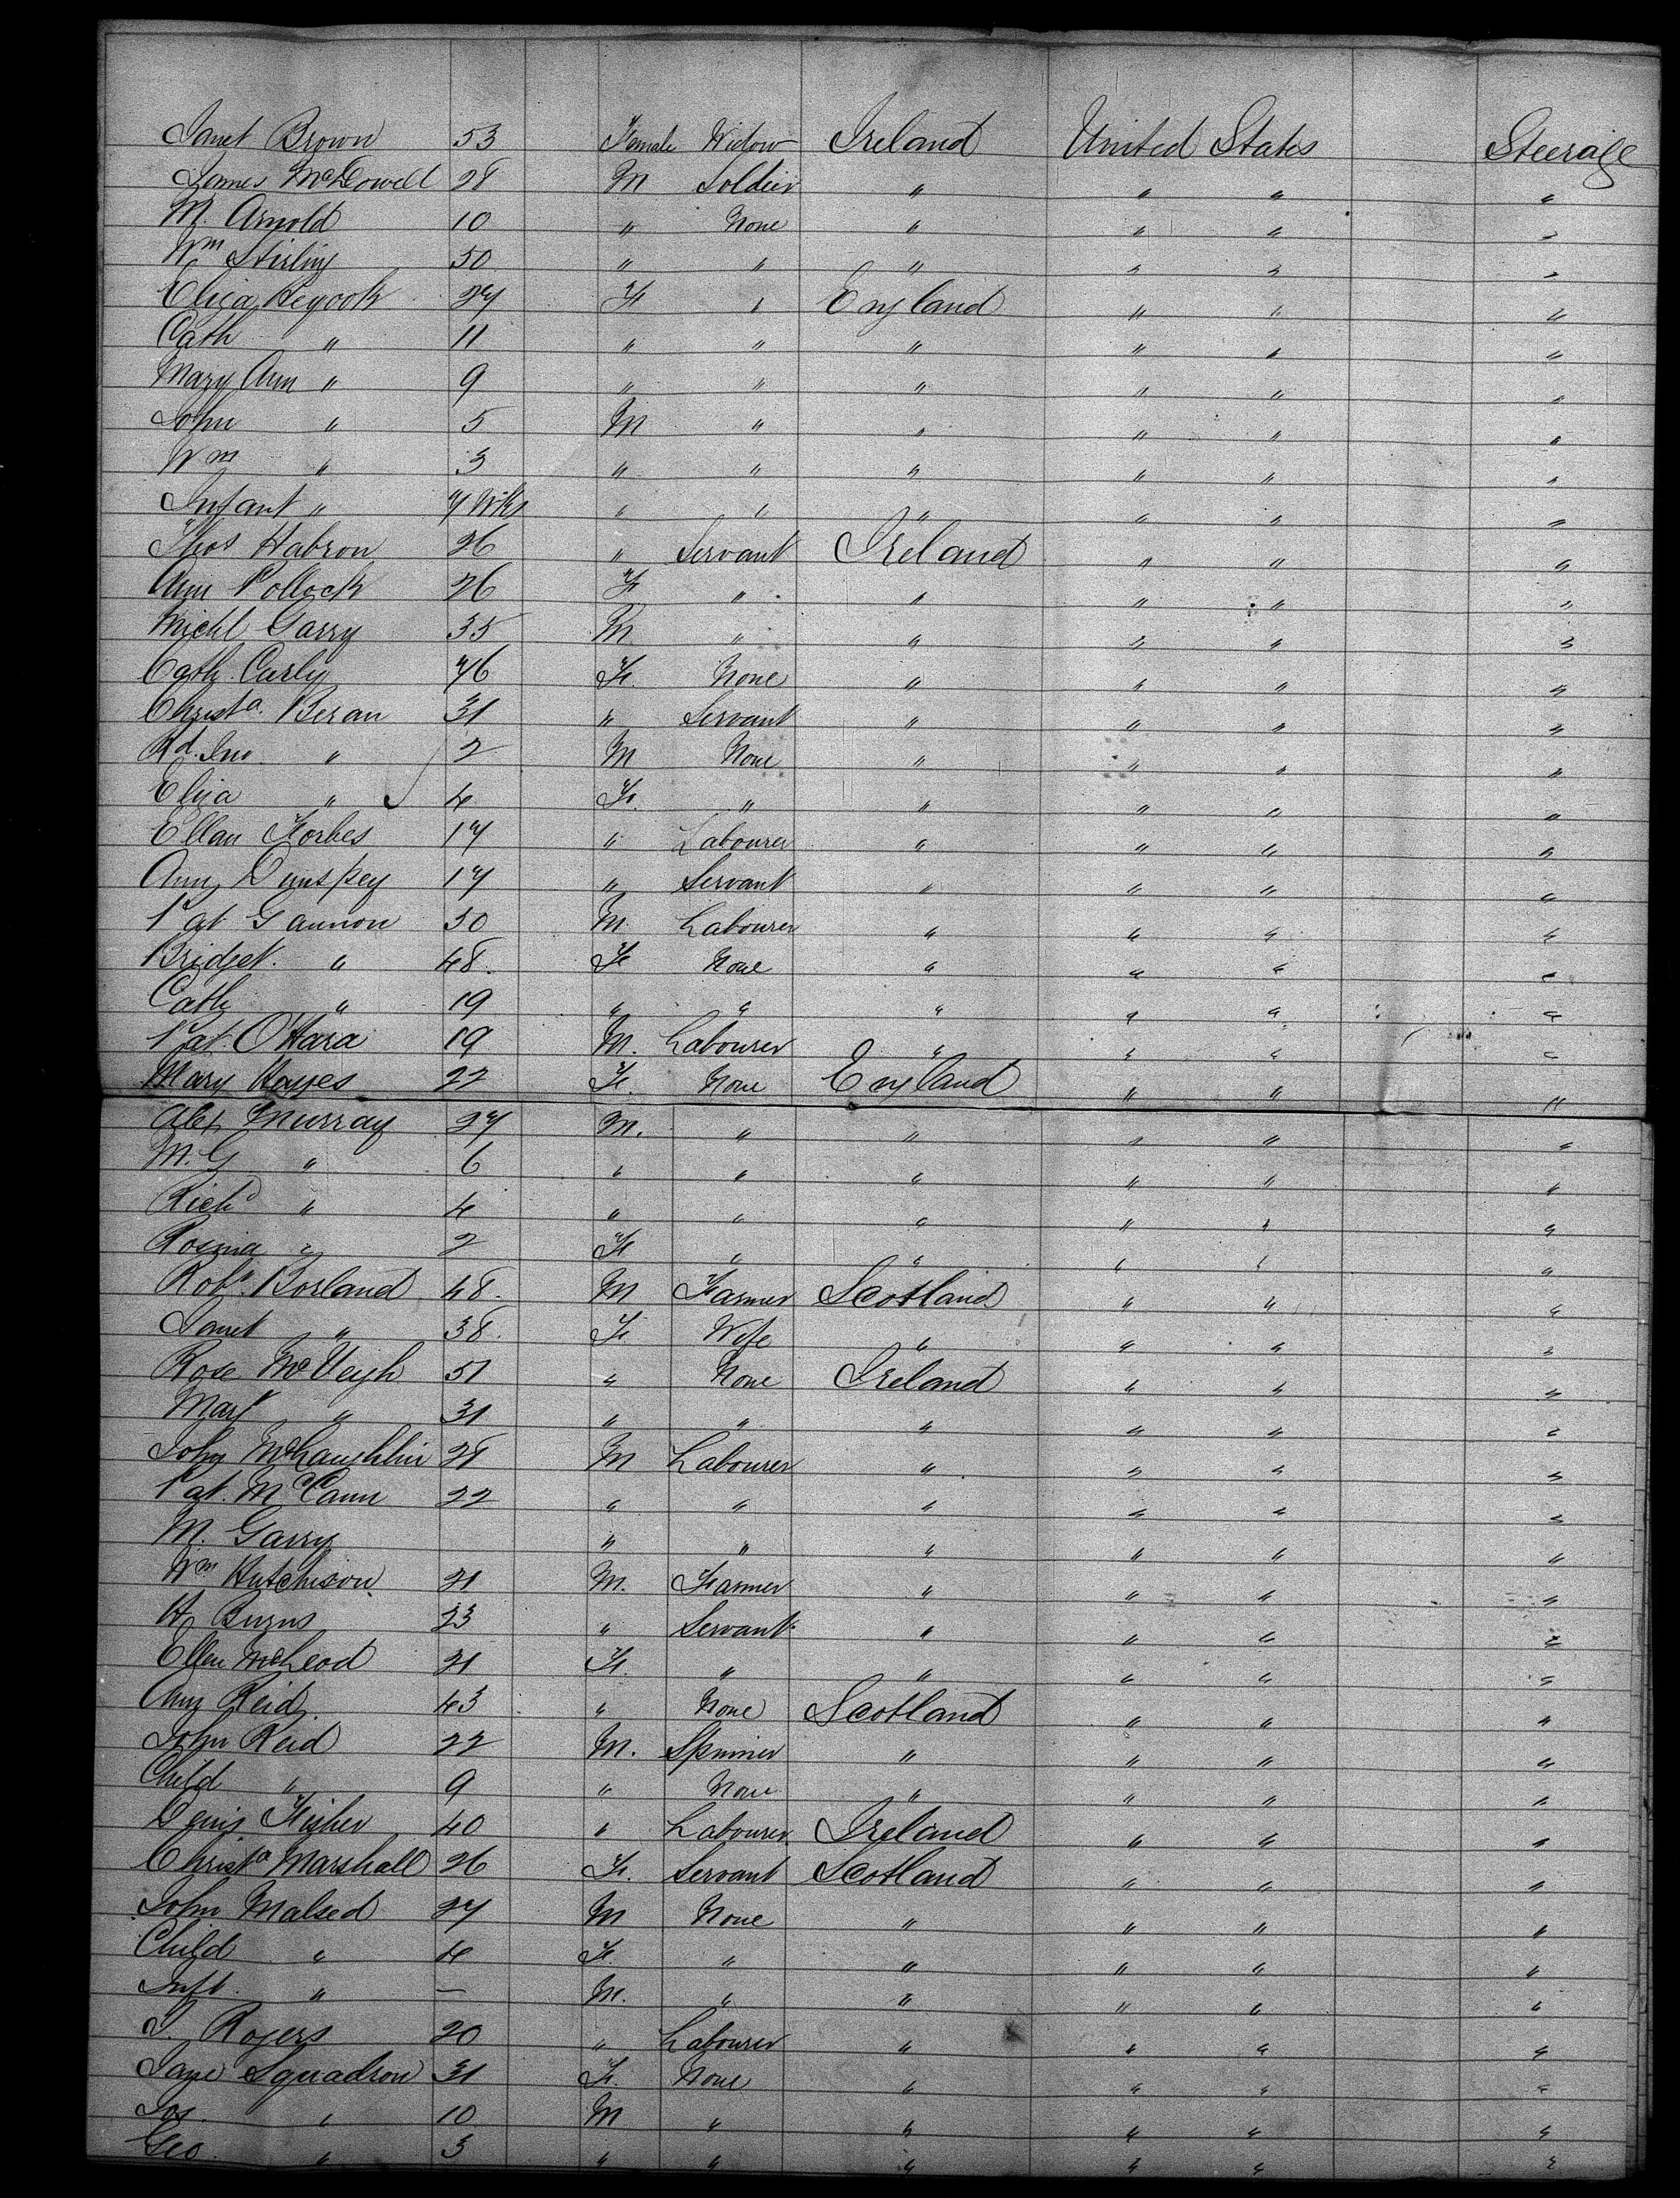 Janet Brown 53 Female Widow Ireland United States Steerage
James McDowell 28 M Soldier " " " "
M. Arnold 10 " None " " " "
Wm Stirling 50 " " " " " "
Eliza Heycock 27 F " England " " "
Cath " 11 " " " " " "
Mary Ann " 9 " " " " " "
John " 5 M " " " " "
Wm " 3 " " " " " "
Infant " 7 Wks " " " " " "
Thos Habron 26 " Servant Ireland " " "
Ann Pollock 26 F " " " " "
Michl Garry 35 M " " " " "
Cath. Curly 46 F. None " " " "
Christa. Beran 31 " Servant " " " "
Rd. Jno. " 2 M None " " " "
Eliza " 4 F. " " " " "
Ellan Forbes 17 " Labourer " " " "
Ann Dunspey 17 " Servant " " " "
Pat Gannon 50 M. Labourer " " " "
Bridget. " 48. F None " " " "
Cath " 19 " " " " " "
Pat. O'Hara 19 M. Labourer " " " "
Mary Hayes 22 F. None England " " "
Alex Murray 27 M. " " " " "
M. G " 6 " " " " " "
Richd " 4 " " " " " "
Rosina " 2 F " " " " "
Robt. Borland 48. M Farmer Scotland " " "
Janet " 38. F Wife " " " "
Rose McVeigh 51 " None Ireland " " "
Mary " 31 " " " " " "
John McLaughlin 28 M Labourer " " " "
Pat. McCann 22 " " " " " "
M. Garry " " " " " "
Wm Hutchison 21 M. Farmer " " " "
H. Burns 23 " Servant " " " "
Ellen McLeod 21 F. " " " " "
Ann Reid. 43 " None Scotland " " "
John Reid 22 M. Spinner " " " "
Child " 9 " None " " " "
Denis Fisher 40 " Labourer Ireland " " "
Christa Marshall 26 F. Servant Scotland " " "
John Malsed 27 M None " " " "
Child " 4 F. " " " " "
Inft. " — M. " " " " "
Rogers 20 " Labourer " " " "
Jane Squadron 31 F. None " " " "
Jos. " 10 M " " " " "
Geo. " 3 " " " " " "